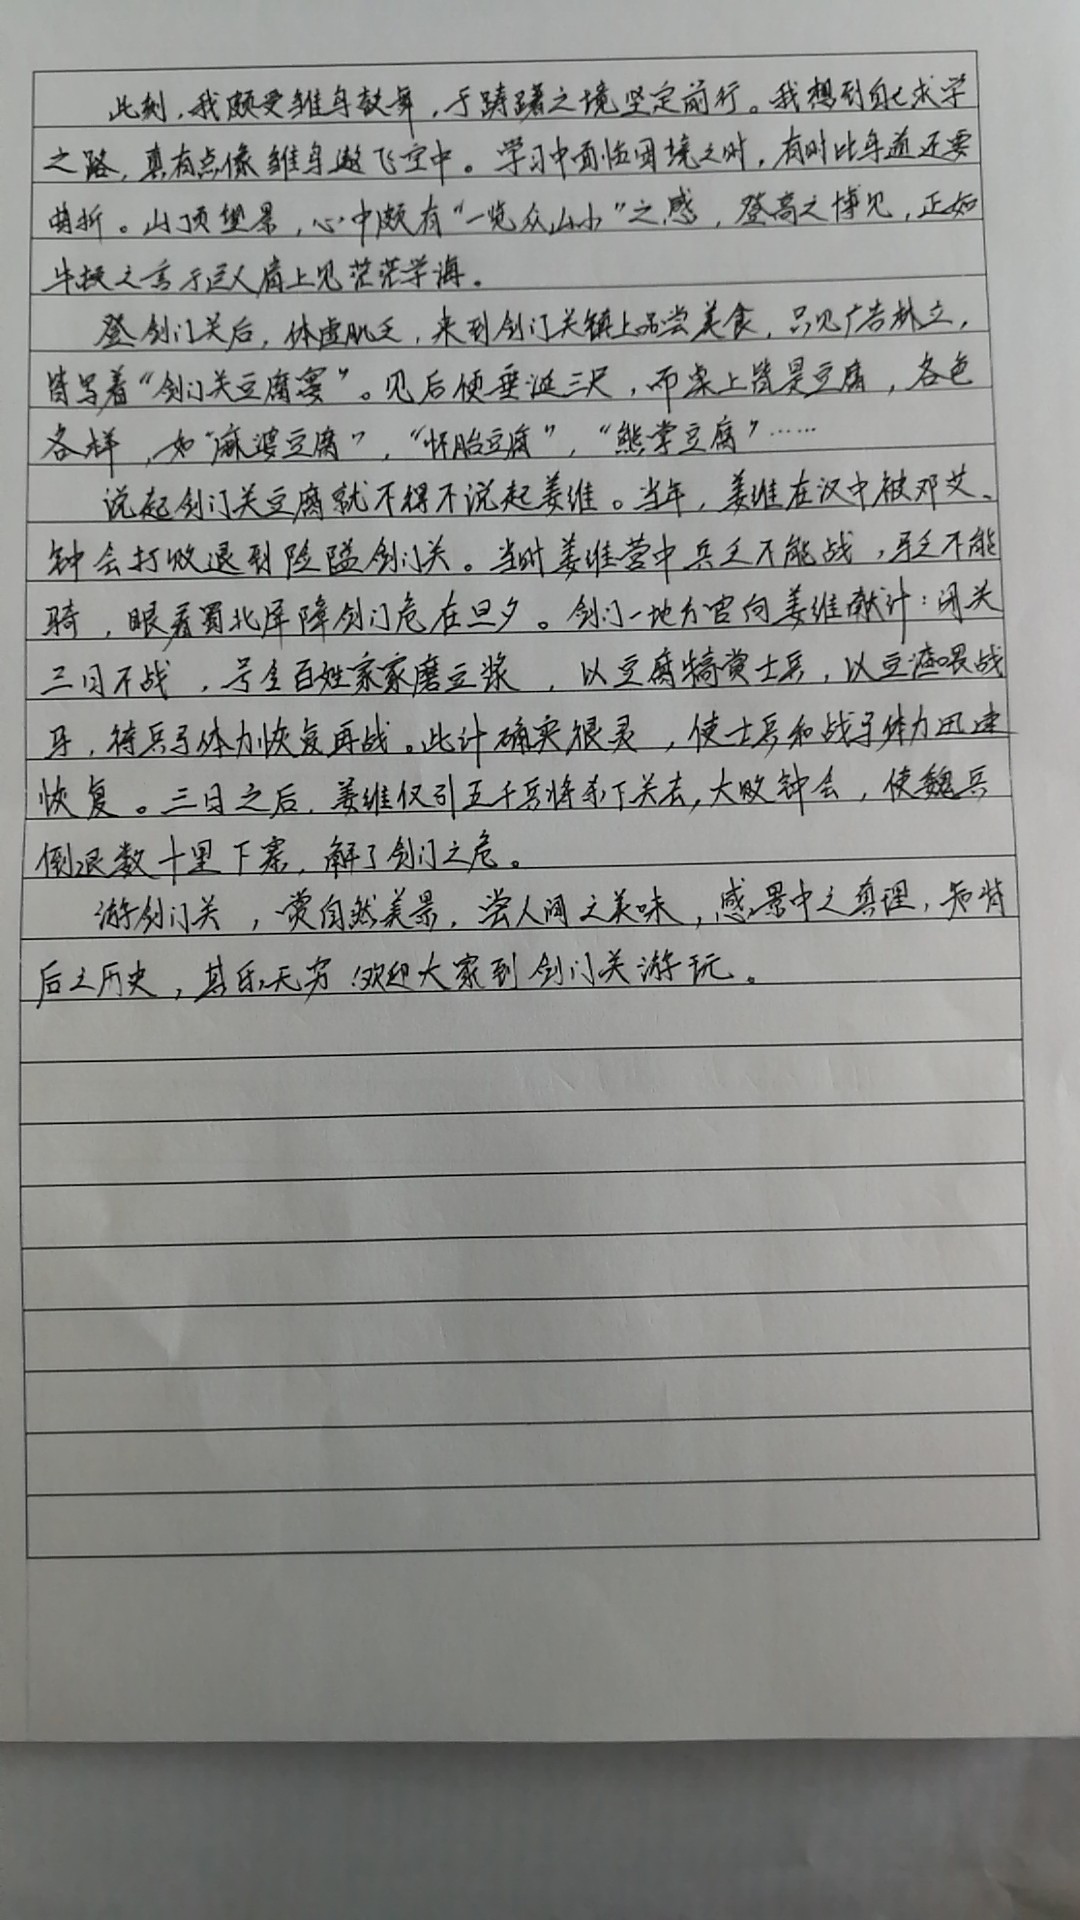 此刻，我颇受雏鸟鼓舞，于踌躇之境坚定前行。我想到自己求学
之路，真有点像雏鸟遨飞空中。学习中面临困境之时，有时比鸟道还要
曲折。山顶望景，心中颇有“一览众山小”之感，登高之博见，正如
牛顿之言于巨人肩上见茫茫学海。
登剑门关后，体虚肌乏，来到剑门关镇上品尝美食，只见广告林立，
皆写着“剑门关豆腐宴”。见后便垂涎三尺，而桌上皆是豆腐，各色
各样，如“麻婆豆腐”，“怀胎豆腐”，“熊掌豆腐”……
说起剑门关豆腐就不得不说起姜维。当年，姜维在汉中被邓艾、
钟会打败退到险隘剑门关。当时姜维营中兵乏不能战，马乏不能
骑，眼看蜀北屏障剑门危在旦夕。剑门一地方官向姜维献计：闭关
三日不战，号令百姓家家磨豆浆，以豆腐犒赏士兵，以豆渣喂战
马，待兵马体力恢复再战。此计确实很灵，使士兵和战马体力迅速
恢复。三日之后，姜维仅引五千兵将杀下关去，大败钟会，使魏兵
倒退数十里下寨，解了剑门之危。
游剑门关，赏自然美景，尝人间之美味，感景中之真理，知背
后之历史，其乐无穷！欢迎大家到剑门关游玩。